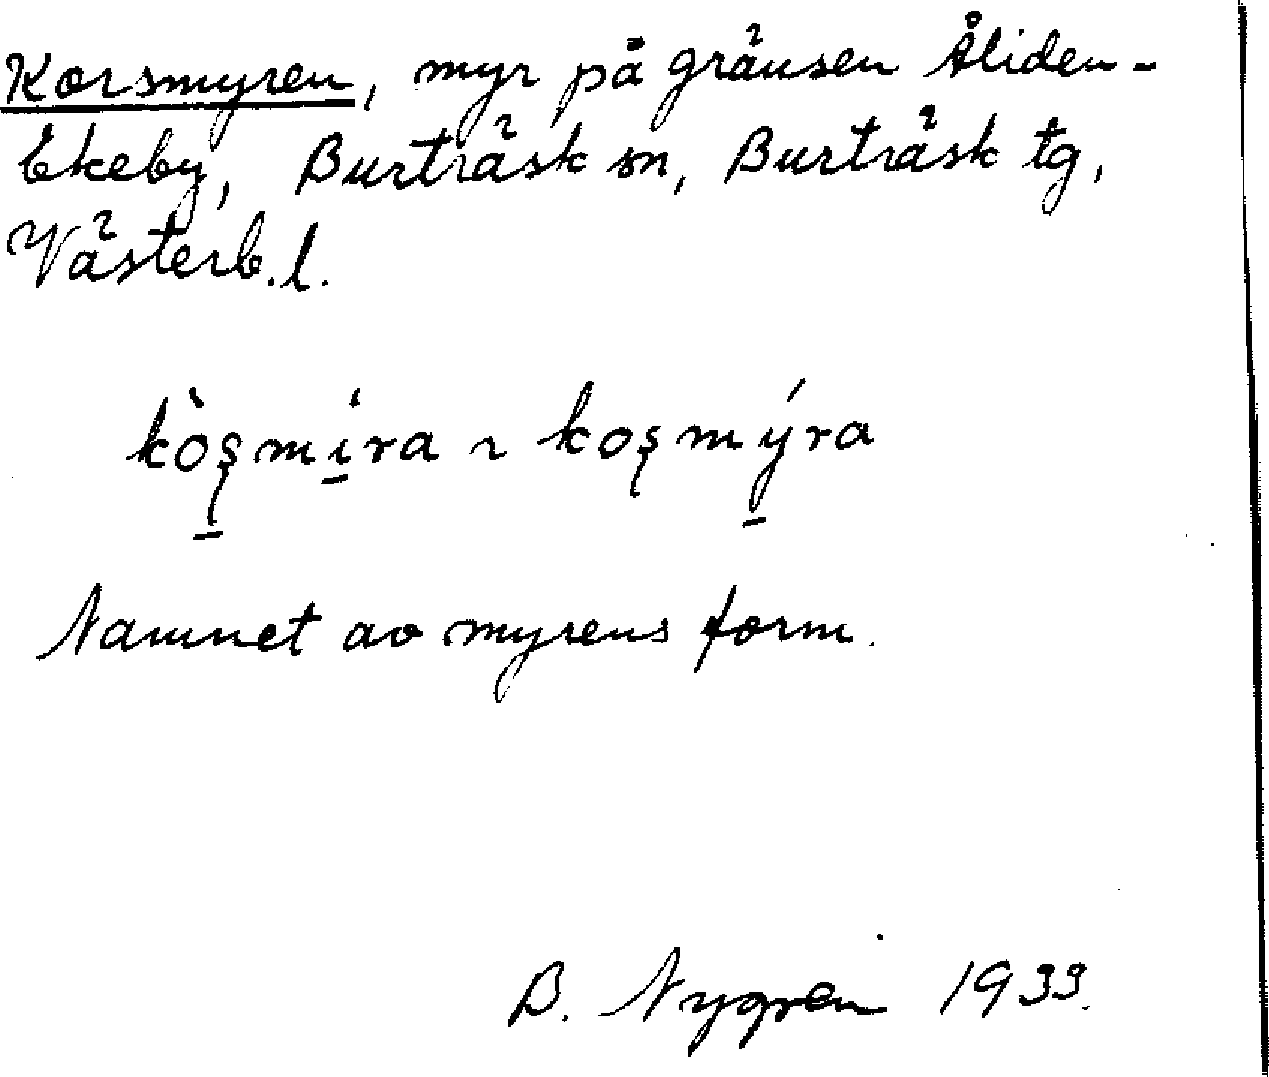 Korsmyren, myr på gränsen Åliden-
Ekeby, Burträsk sn, Burträsk tg,
Västerb.l.
kòʂ̱mi̱ra ~ koʂmý̱ra
Namnet av myrens form.
B. Nygren 1933.